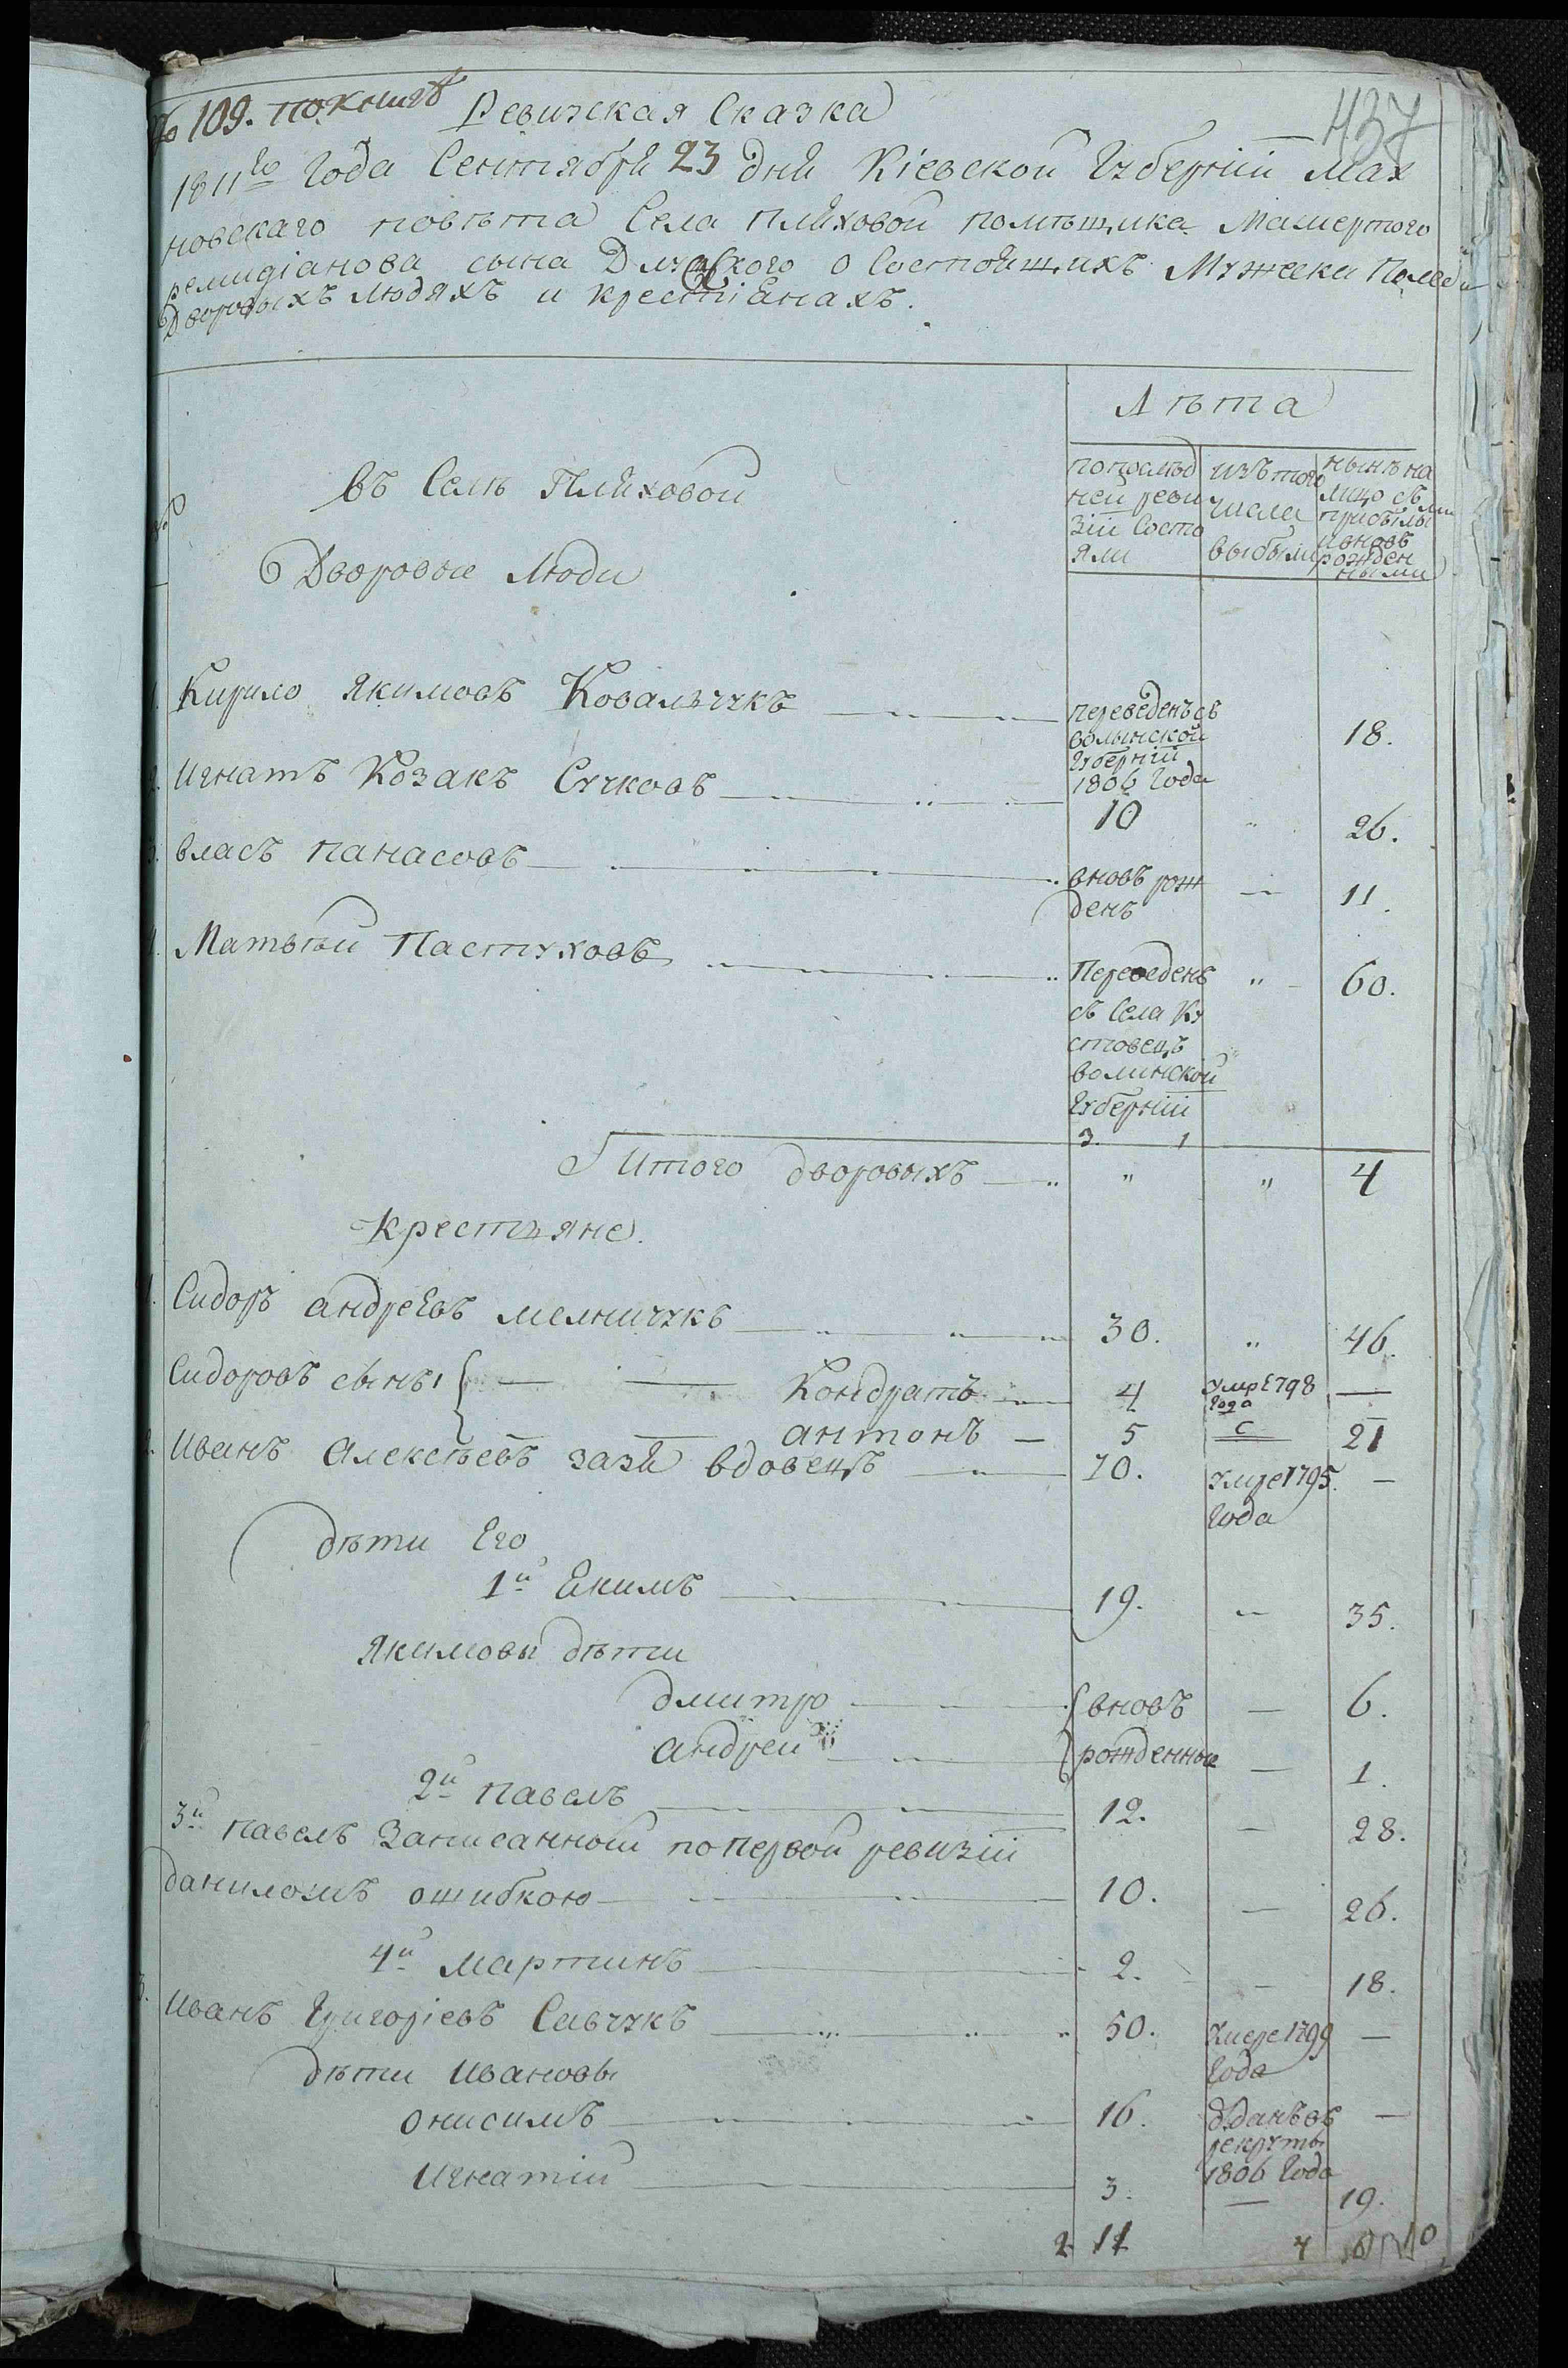 № 109. по книгѣ Ревизская Сказка 437
1811го Года Сентября 23 дня Кіевской Губерніи Мах
новскаго повѣта Села Пляховой помѣщика Мамертого
ремидіанова сына о Состоящихъ Мужеска Пола
Дворовыхъ Людяхъ и крестіянахъ.
Лѣта
въ Селѣ Пляховой
Дворовые Люди
попослѣд
ней реви
зіи Состо
яли
изъ того
числа
выбыли
нынѣ на
лицо съ
прибылы
ми
и вновь
рожден
ными
1. Кирило Якимовъ Ковальчукъ переведенъ съ волынской Губерніи 1806 Года 18.
2. Игнатъ Козакъ Сучковъ 10 „ 26.
3. власъ панасовъ вновь рож денъ — 11.
4. Матвѣй Пастуховъ Переведенъ съ Села Ку стовецъ волинской Губерніи „ 60.
3. 1
Итого дворовыхъ „ „ 4
крестьяне.
1. Сидоръ андреевъ мелничукъ 30. „ 46.
Сидоровъ сынъ Кондратъ 4 умре 1798 Года —
антонъ 5 — 21
2. Иванъ Алексѣевъ зазя вдовецъ 70. умре 1795. Года —
дѣти Его
1й Екимъ 19. „ 35.
Якимовы дѣти
дмитро вновь — 6.
андреи рожденные — 1.
2й павелъ 12. — 28.
3й павелъ Записанной по Первой ревизіи
даниломъ ошибкою 10. — 26.
4й мартинъ 2. — 18.
3. Иванъ Григоріевъ Савчукъ 50. Умре 1799 Года —
дѣти Ивановы
онисимъ 16. отданъ въ рекруты 1806 Года —
Игнатій 3. — 19.
2 11 4 10